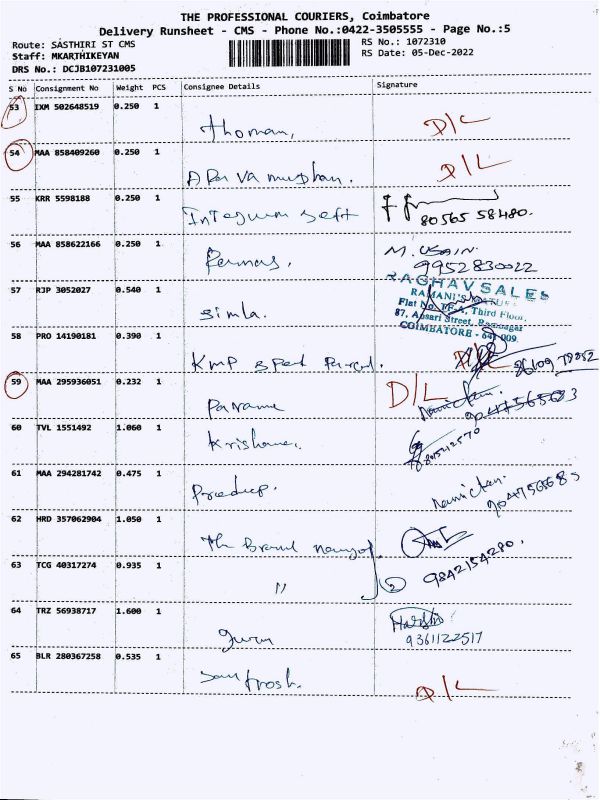 THE PROFESSIONAL COURIERS, Coimbatore
Delivery Runsheet - CMS - Phone No.:0422-3505555 - Page No.:5
Route: SASTHIRI ST CMS
Staff: MKARTHIKEYAN
DRS No.: DCJB107231005
RS No.: 1072310
RS Date: 05-Dec-2022
S No Consignment No Weight PCS Consignee Details Signature
53 IXM 502648519 0.250 1
thoman, D/L
54 MAA 858409260 0.250 1
D/L
55 KRR 5598188 0.250 1
Integrum Seft 80565 58480.
56 MAA 858622166 0.250 1
M. USAIN.
9952830022
57 RJP 3052027 0.540 1
Simla.
RAGHAV SALES
RAMANI'S
Flat No. Third Floor,
87, Ansari Street, Ramnagar
COIMBATORE - 641 009.
58 PRO 14190181 0.390 1
KMP Speed Parcel. D/L
59 MAA 295936051 0.232 1
D/L
60 TVL 1551492 1.060 1
61 MAA 294281742 0.475 1
Pradeep.
62 HRD 357062904 1.050 1
The Brand
63 TCG 40317274 0.935 1
" 2 9842154280.
64 TRZ 56938717 1.600 1
guru
9361122517
65 BLR 280367258 0.535 1
Santhosh. D/L